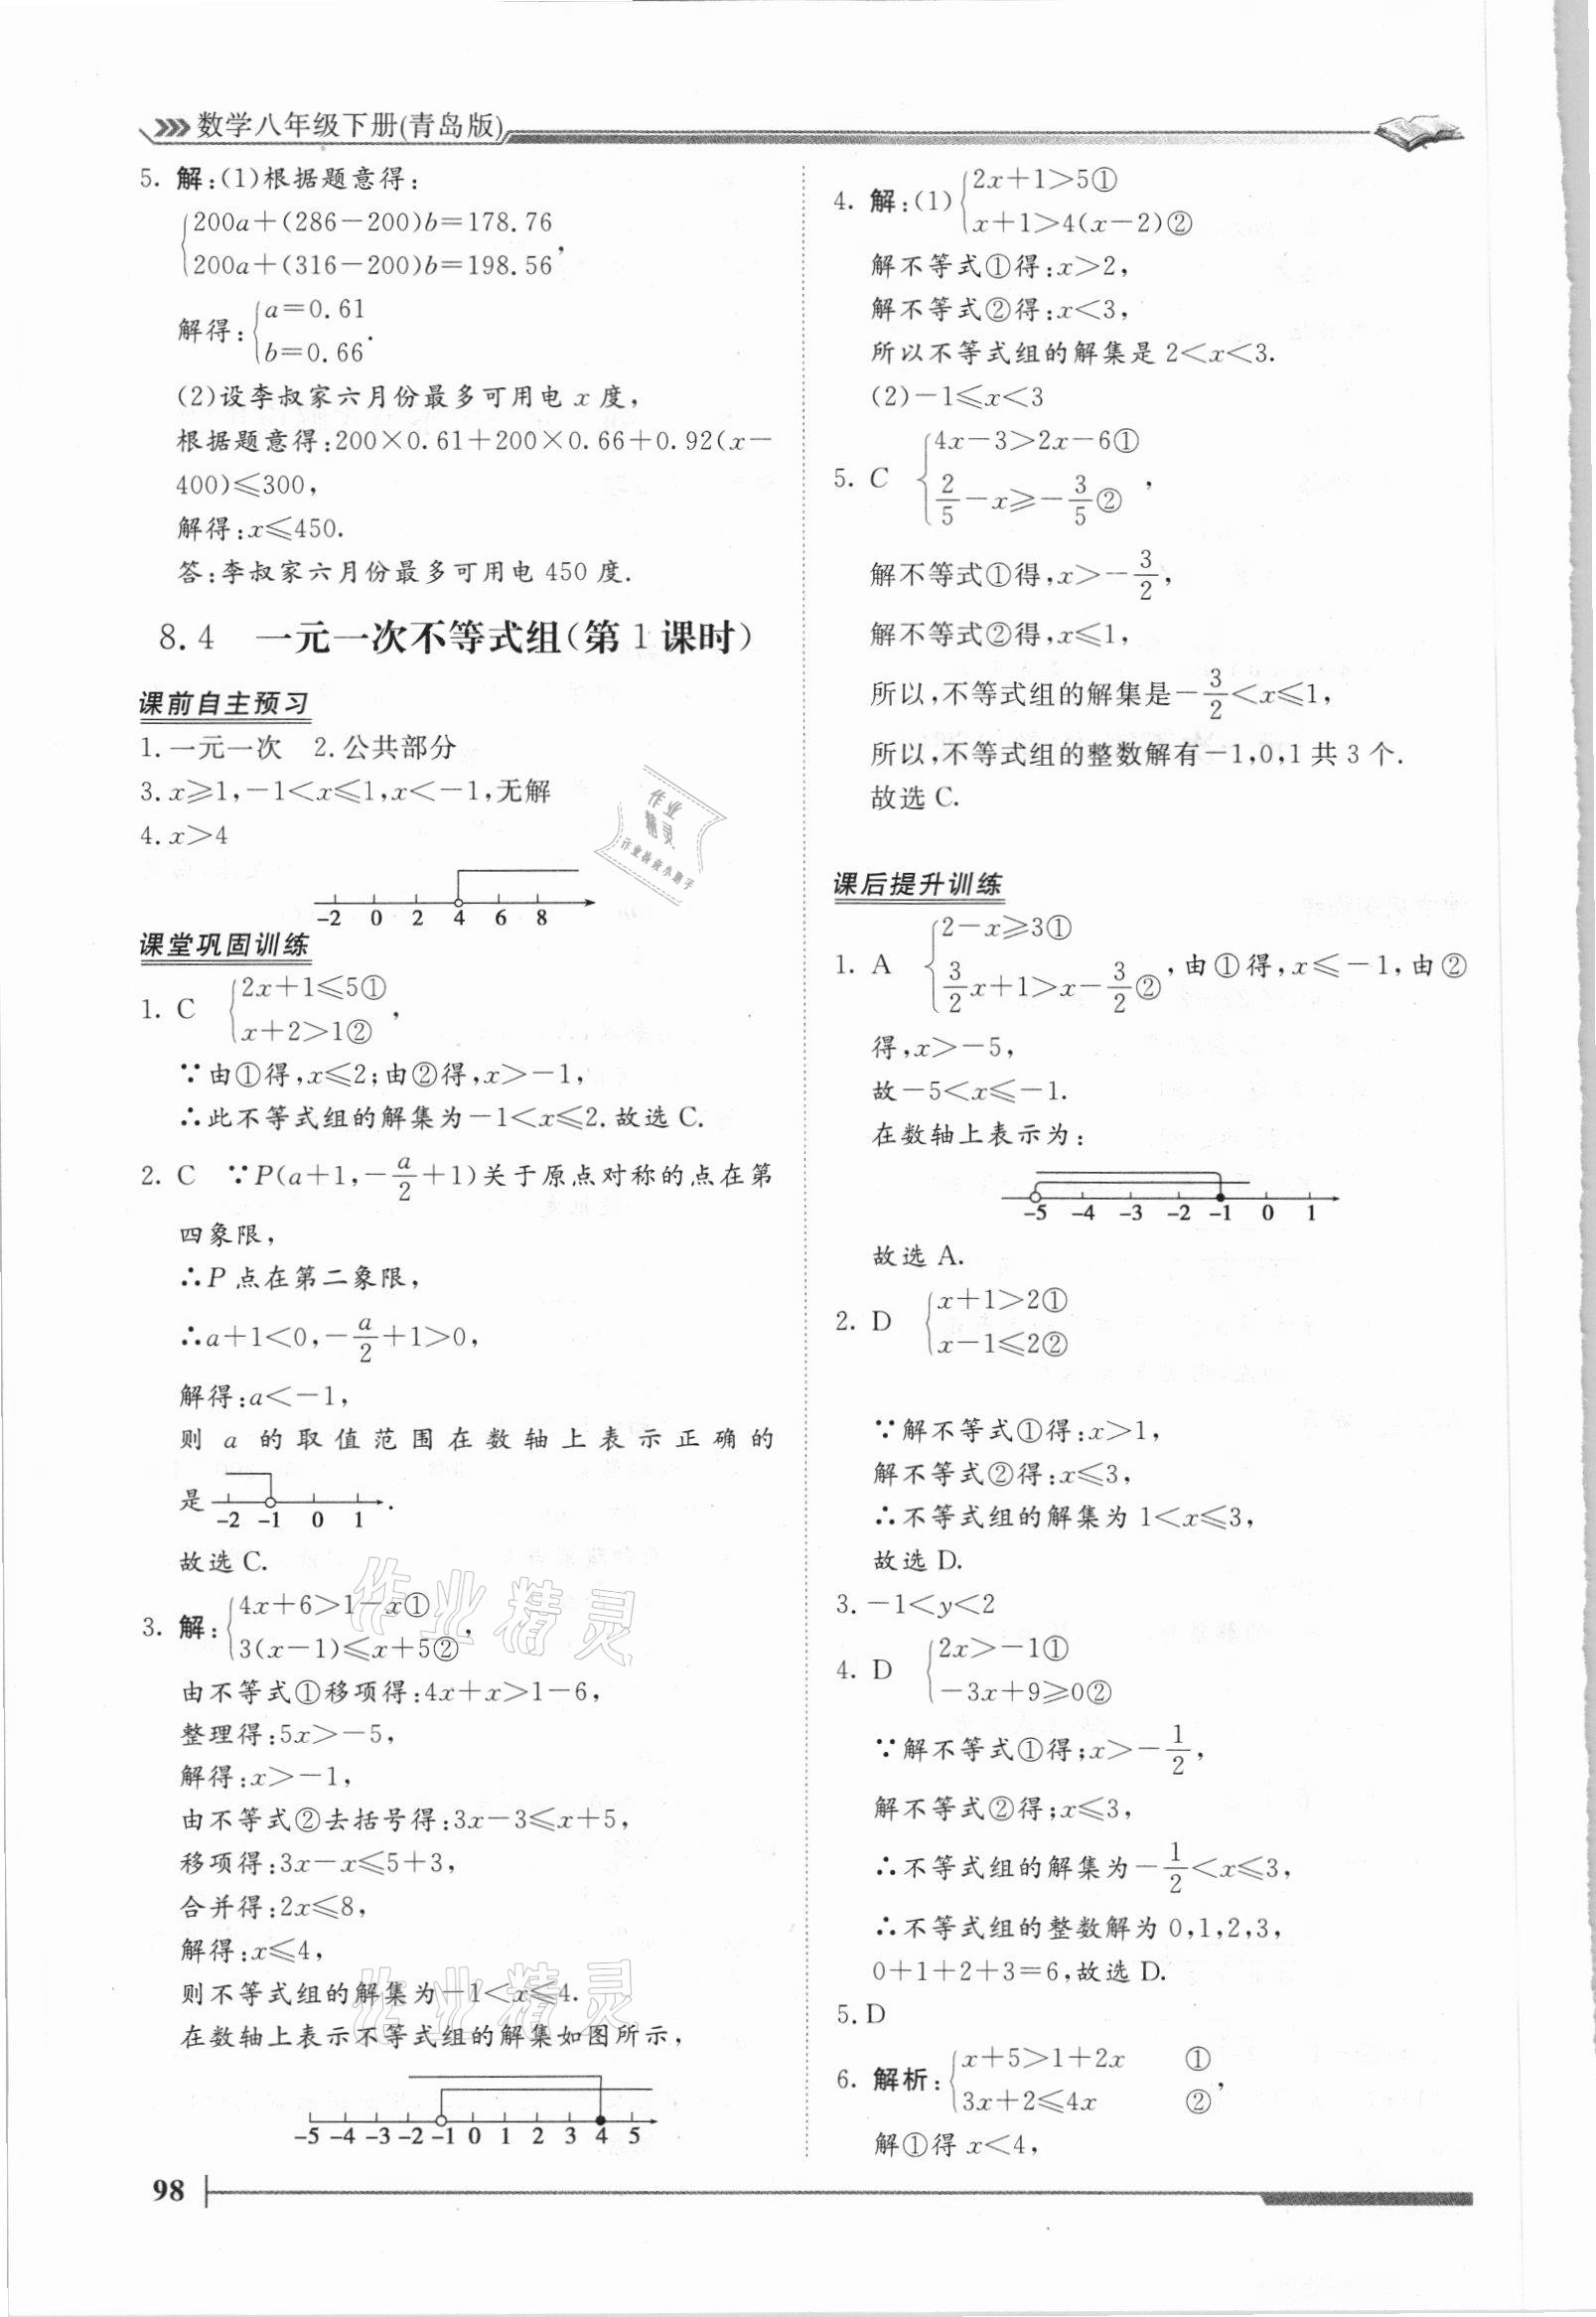 数学八年级下册(青岛版)
5. 解:(1)根据题意得:
{200a+(286-200)b=178.76
200a+(316-200)b=198.56,
解得:{a=0.61
b=0.66.
(2)设李叔家六月份最多可用电 x 度,
根据题意得:200×0.61+200×0.66+0.92(x-
400)≤300,
解得:x≤450.
答:李叔家六月份最多可用电 450 度.
8.4 一元一次不等式组(第 1 课时)
课前自主预习
1. 一元一次 2. 公共部分
3. x≥1,-1<x≤1,x<-1,无解
4. x>4
-2 0 2 4 6 8
课堂巩固训练
1. C {2x+1≤5①
x+2>1②,
∵由①得,x≤2;由②得,x>-1,
∴此不等式组的解集为-1<x≤2.故选 C.
2. C ∵P(a+1,-a/2+1)关于原点对称的点在第
四象限,
∴P 点在第二象限,
∴a+1<0,-a/2+1>0,
解得:a<-1,
则 a 的取值范围在数轴上表示正确的
是
-2 -1 0 1 .
故选 C.
3. 解:{4x+6>1-x①
3(x-1)≤x+5②,
由不等式①移项得:4x+x>1-6,
整理得:5x>-5,
解得:x>-1,
由不等式②去括号得:3x-3≤x+5,
移项得:3x-x≤5+3,
合并得:2x≤8,
解得:x≤4,
则不等式组的解集为-1<x≤4.
在数轴上表示不等式组的解集如图所示,
-5 -4 -3 -2 -1 0 1 2 3 4 5
4. 解:(1){2x+1>5①
x+1>4(x-2)②
解不等式①得:x>2,
解不等式②得:x<3,
所以不等式组的解集是 2<x<3.
(2)-1≤x<3
5. C {4x-3>2x-6①
2/5-x≥-3/5②,
解不等式①得,x>-3/2,
解不等式②得,x≤1,
所以,不等式组的解集是-3/2<x≤1,
所以,不等式组的整数解有-1,0,1 共 3 个.
故选 C.
课后提升训练
1. A {2-x≥3①
3/2x+1>x-3/2②,由①得,x≤-1,由②
得,x>-5,
故-5<x≤-1.
在数轴上表示为:
-5 -4 -3 -2 -1 0 1
故选 A.
2. D {x+1>2①
x-1≤2②
∵解不等式①得:x>1,
解不等式②得:x≤3,
∴不等式组的解集为 1<x≤3,
故选 D.
3. -1<y<2
4. D {2x>-1①
-3x+9≥0②
∵解不等式①得;x>-1/2,
解不等式②得;x≤3,
∴不等式组的解集为-1/2<x≤3,
∴不等式组的整数解为 0,1,2,3,
0+1+2+3=6,故选 D.
5. D
6. 解析:{x+5>1+2x ①
3x+2≤4x ②,
解①得 x<4,
98
作业
精灵
作业检查小助手
作业精灵
作业精灵